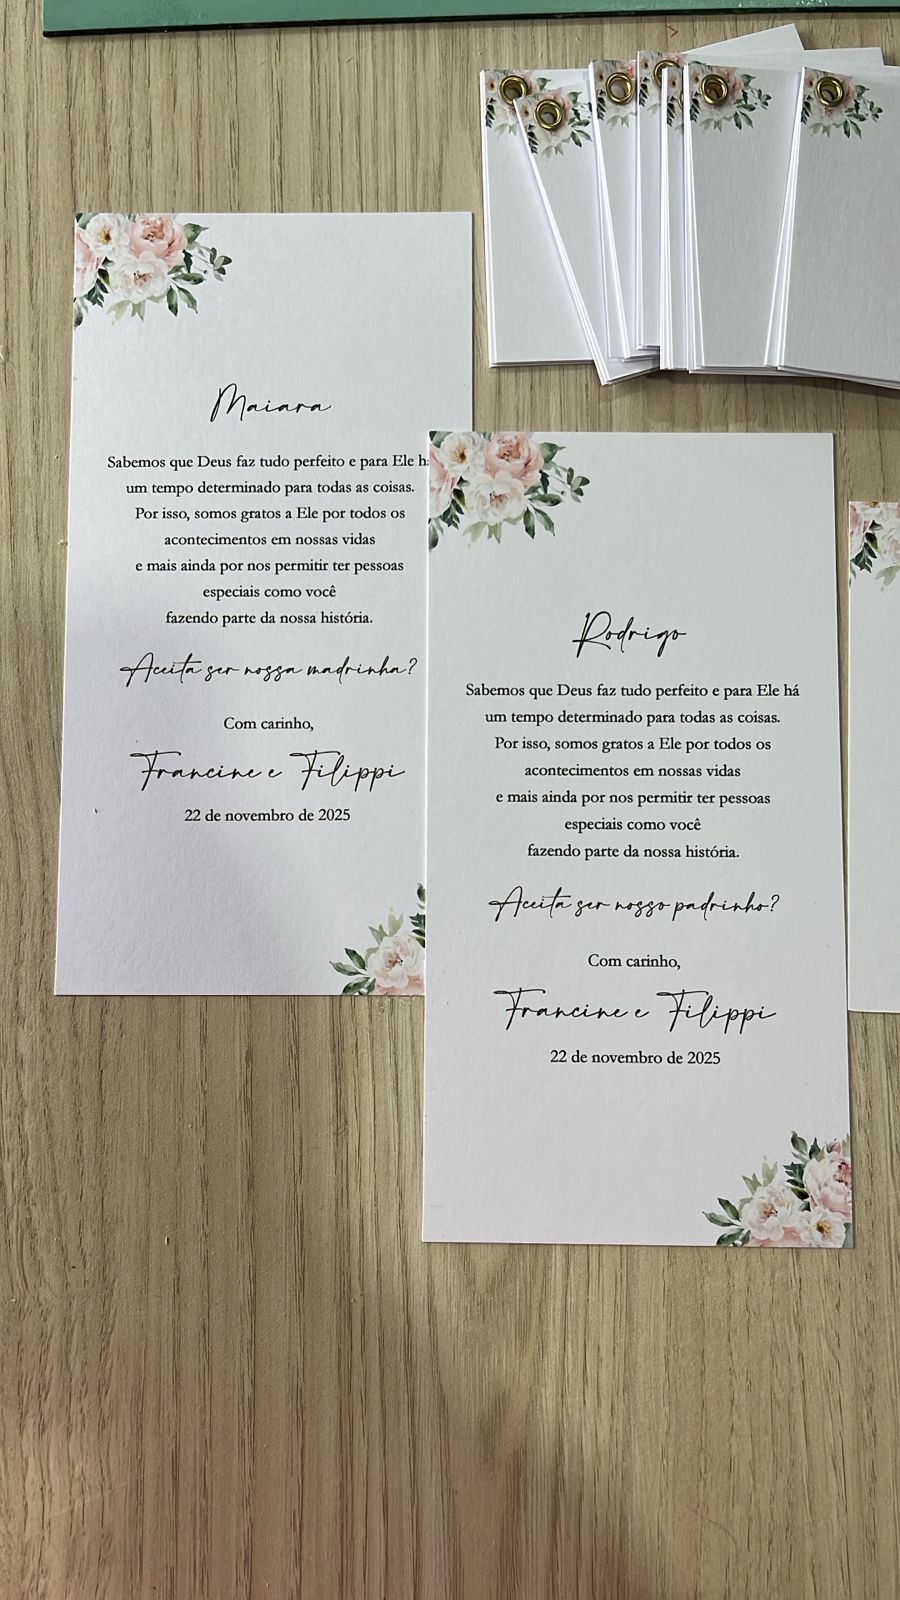 Maiara
Sabemos que Deus faz tudo perfeito e para Ele há
um tempo determinado para todas as coisas.
Por isso, somos gratos a Ele por todos os
acontecimentos em nossas vidas
e mais ainda por nos permitir ter pessoas
especiais como você
fazendo parte da nossa história.
Aceita ser nossa madrinha?
Com carinho,
Francine e Filippi
22 de novembro de 2025
Rodrigo
Sabemos que Deus faz tudo perfeito e para Ele há
um tempo determinado para todas as coisas.
Por isso, somos gratos a Ele por todos os
acontecimentos em nossas vidas
e mais ainda por nos permitir ter pessoas
especiais como você
fazendo parte da nossa história.
Aceita ser nosso padrinho?
Com carinho,
Francine e Filippi
22 de novembro de 2025